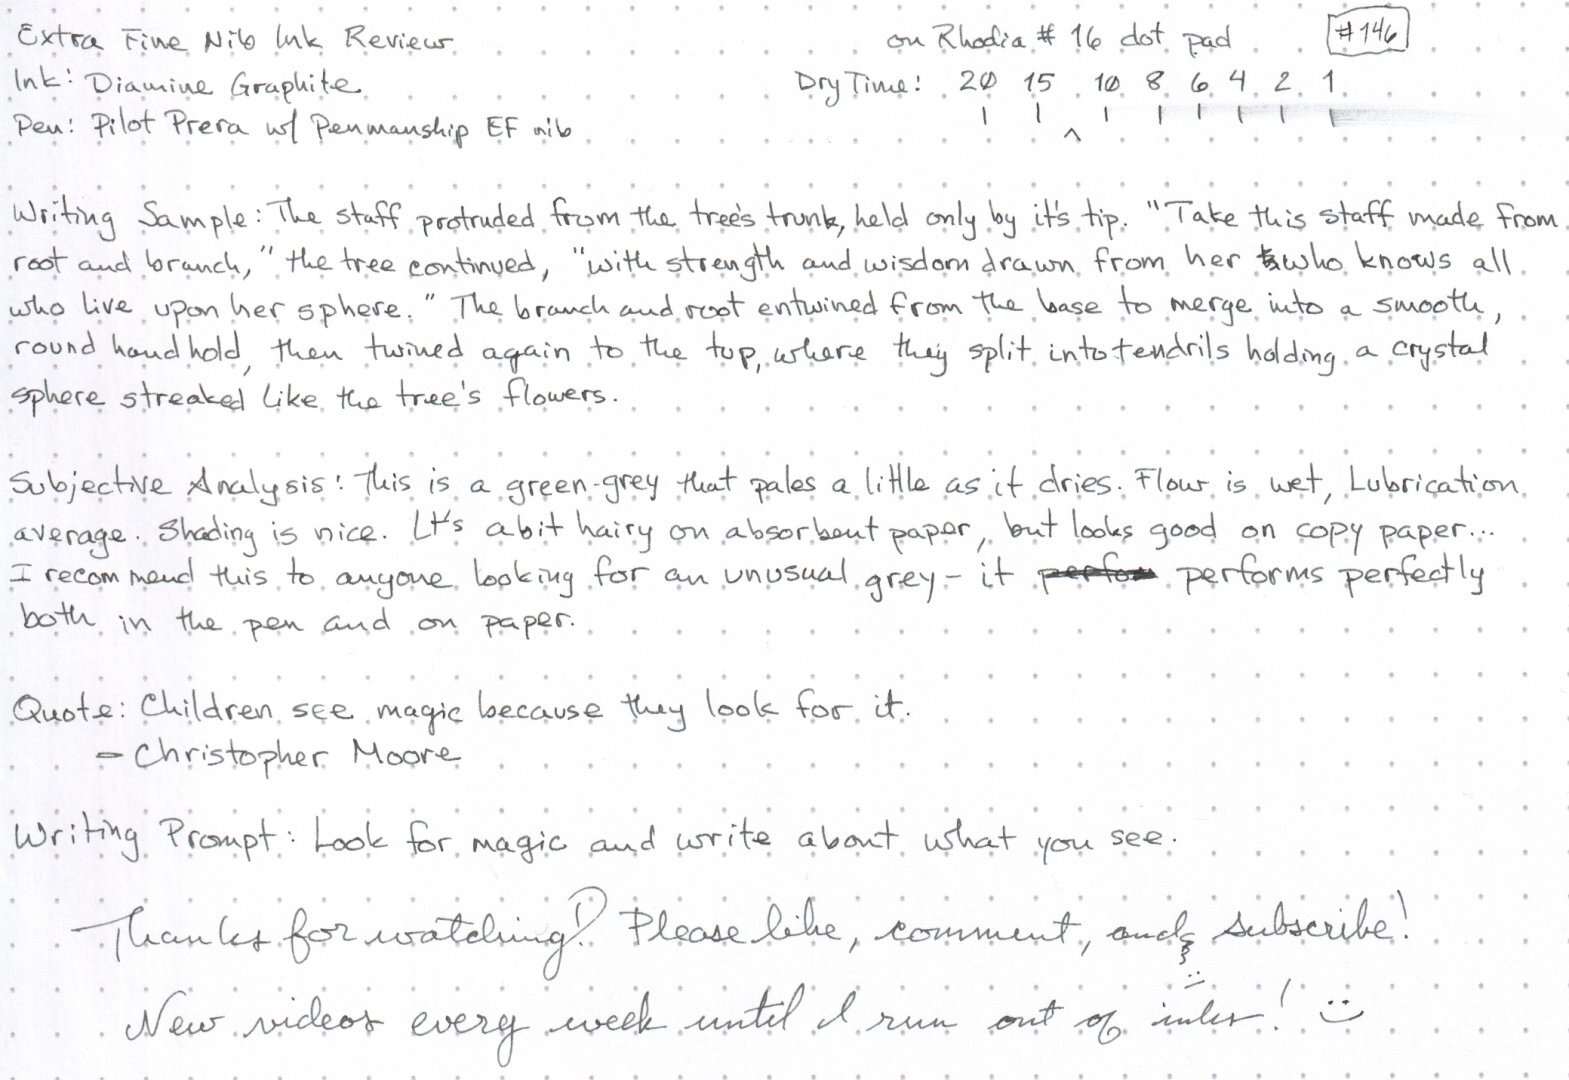 Extra Fine Nib Ink Review on Rhodia # 16 dot pad #146
Ink: Diamine Graphite Dry Time: 20 15 10 8 6 4 2 1
Pen: Pilot Prera w/ Penmanship EF nib ^
Writing Sample: The staff protruded from the tree's trunk, held only by it's tip. "Take this staff made from
root and branch," the tree continued, "with strength and wisdom drawn from her who knows all
who live upon her sphere." The branch and root entwined from the base to merge into a smooth,
round hand hold, then twined again to the top, where they split into tendrils holding a crystal
sphere streaked like the tree's flowers.
Subjective Analysis: This is a green-grey that pales a little as it dries. Flow is wet, Lubrication
average. Shading is nice. It's a bit hairy on absorbent paper, but looks good on copy paper...
I recommend this to anyone looking for an unusual grey - it perfom performs perfectly
both in the pen and on paper.
Quote: Children see magic because they look for it.
- Christopher Moore
Writing Prompt: Look for magic and write about what you see.
Thanks for watching! Please like, comment, and subscribe!
New videos every week until I run out of inks! :)